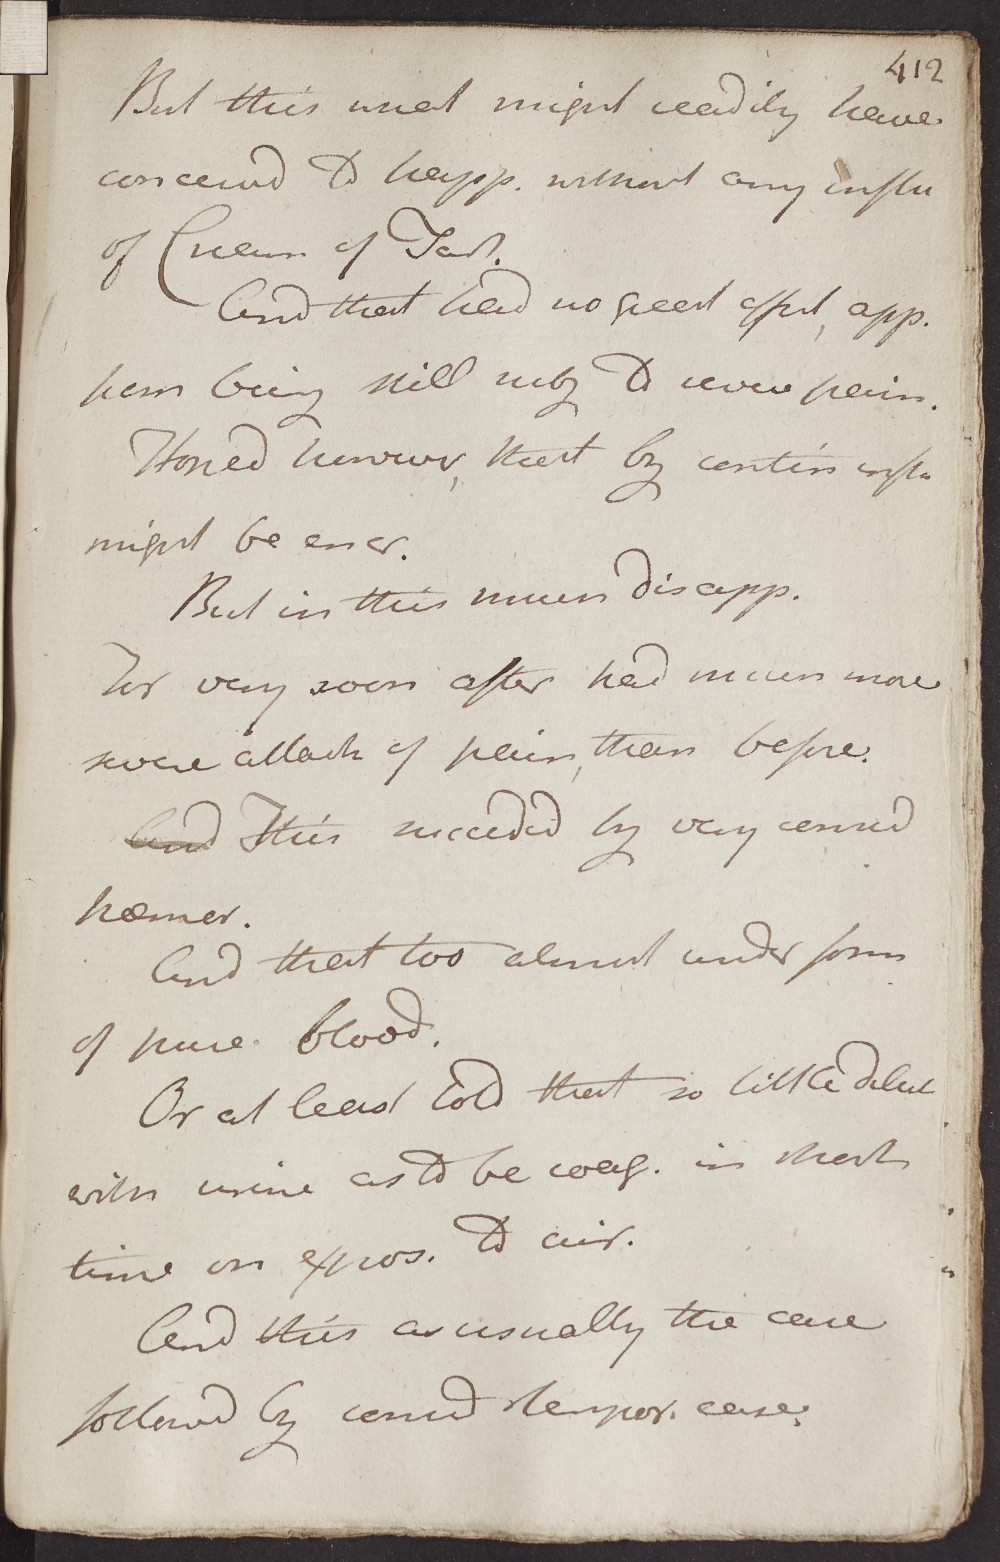 412
But this must might readily have
conceived to happ. without any influ
of Cream of Tart.
And that had no great effect, app.
from being still subj to severe pain.
Hoped however, that by contin influ
might be encr.
But in this much disapp.
For very soon after had much more
severe attack of pain, than before.
And This succeeded by very consid
hæmor.
And that too almost under form
of pure blood.
Or at least told that so little dilut
with urine as to be coag. in short
time on expos. to air.
And this as usually the case
followed by consid tempor. ease.